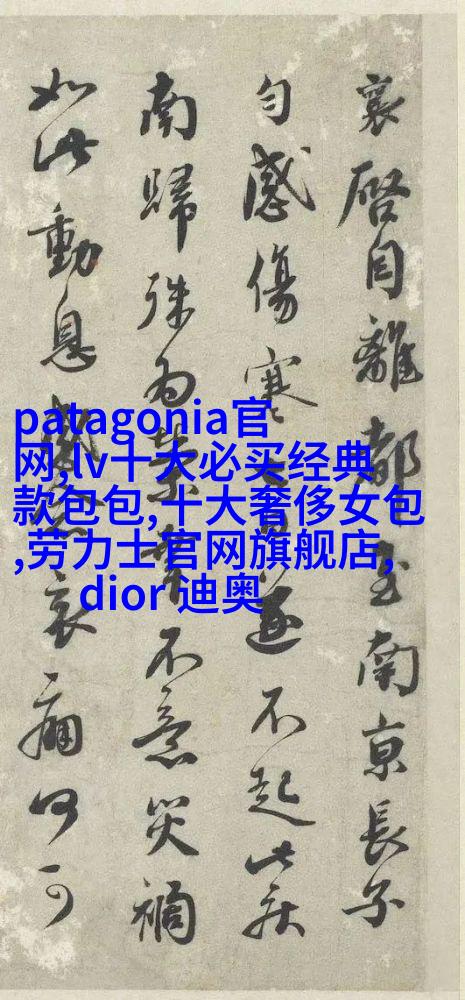 襄啓自離都至南京長子
勻感傷寒遂不起此疾
南歸殊为榮不意災禍
如此動息哀痛何可
patagonia官
网,lv十大必买经典
款包包,十大奢侈女包
,劳力士官网旗舰店,
dior 迪奥